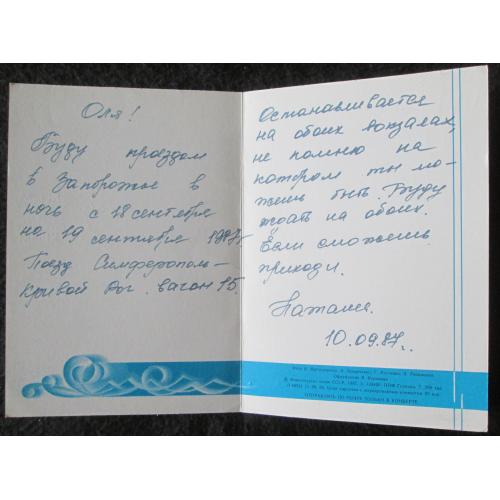 Оля!
Буду проездом
в Запорожье в
ночь с 18 сентября
на 19 сентября 1987г
Поезд Симферополь-
Кривой Рог. вагон 15.
Останавливается
на обоих вокзалах,
не помню на
котором ты мо-
жешь быть. Буду
ждать на обоих.
Если сможешь
приходи.
Наташа.
10.09.87г.
ОТПРАВЛЯТЬ ПО ПОЧТЕ ТОЛЬКО В КОНВЕРТЕ